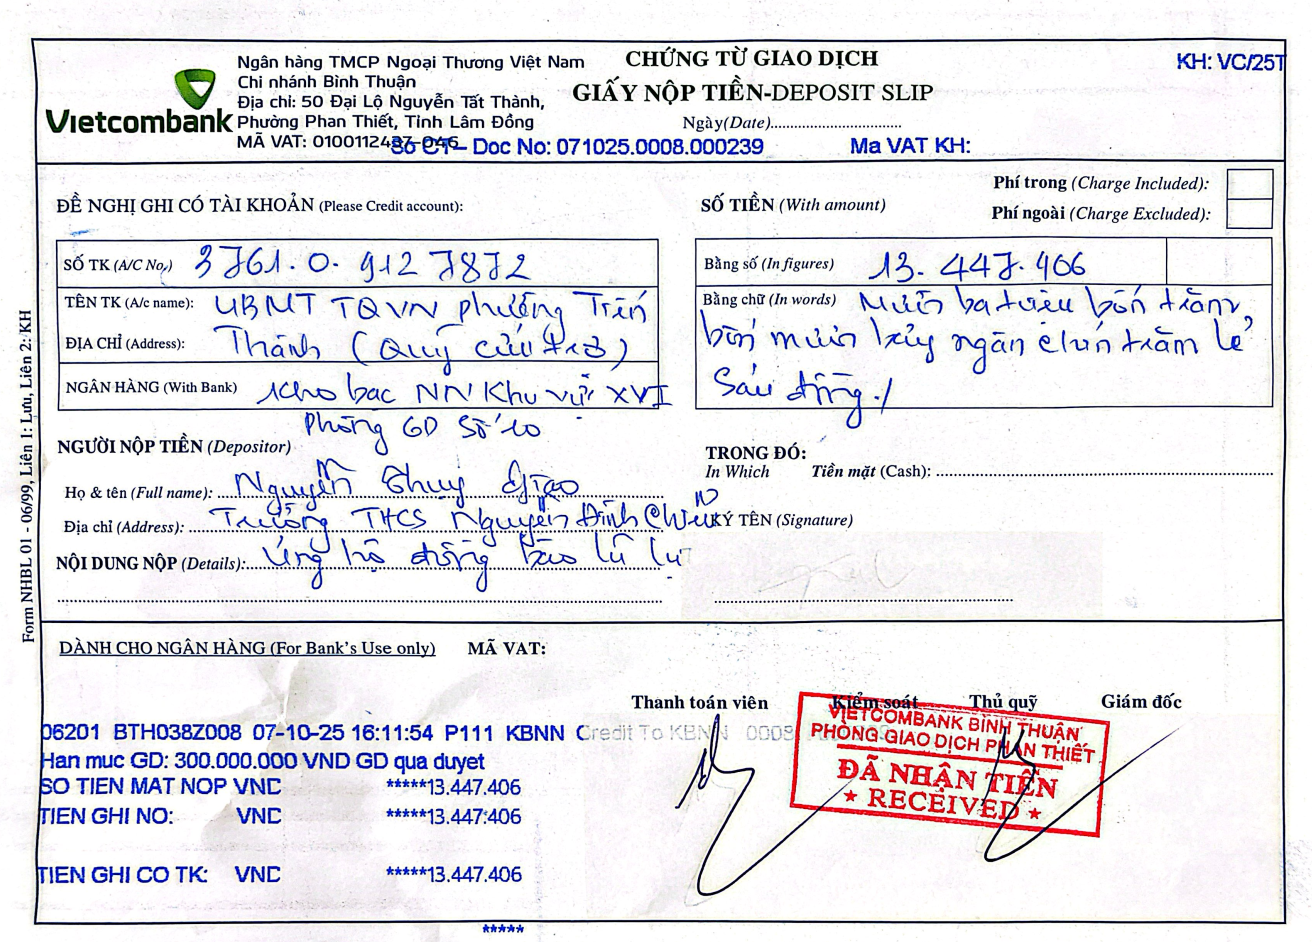 Vietcombank
Ngân hàng TMCP Ngoại Thương Việt Nam
Chi nhánh Bình Thuận
Địa chỉ: 50 Đại Lộ Nguyễn Tất Thành,
Phường Phan Thiết, Tỉnh Lâm Đồng
MÃ VAT: 0100112437-046
CHỨNG TỪ GIAO DỊCH
GIẤY NỘP TIỀN-DEPOSIT SLIP
Ngày(Date)
KH: VC/25T
Số CT - Doc No: 071025.0008.000239 Ma VAT KH:
Phí trong (Charge Included):
Phí ngoài (Charge Excluded):
ĐỀ NGHỊ GHI CÓ TÀI KHOẢN (Please Credit account):
SỐ TIỀN (With amount)
SỐ TK (A/C No.) 3761.0.9127872
TÊN TK (A/c name): UBMT TQVN phường Tiến
ĐỊA CHỈ (Address): Thành (Quỹ cứu trợ)
NGÂN HÀNG (With Bank) Kho bạc NN Khu vực XVI
Phòng GD Số 10
Bằng số (In figures) 13.447.406
Bằng chữ (In words) Mười ba triệu bốn trăm,
bốn mươi bảy ngàn chín trăm lẻ
Sáu đồng./
NGƯỜI NỘP TIỀN (Depositor)
Họ & tên (Full name): Nguyễn Thuy
Địa chỉ (Address): Trường THCS Nguyễn Đình Chiểu
NỘI DUNG NỘP (Details): Ủng hộ đồng bào lũ lụt
TRONG ĐÓ:
In Which Tiền mặt (Cash):
KÝ TÊN (Signature)
Form NHBL 01 - 06/99, Liên 1: Lưu, Liên 2: KH
DÀNH CHO NGÂN HÀNG (For Bank's Use only) MÃ VAT:
Thanh toán viên Kiểm soát Thủ quỹ Giám đốc
06201 BTH038Z008 07-10-25 16:11:54 P111 KBNN Credit To KBNN 0008
Han muc GD: 300.000.000 VND GD qua duyet
SO TIEN MAT NOP VND *****13.447.406
TIEN GHI NO: VND *****13.447.406
TIEN GHI CO TK: VND *****13.447.406
*****
VIETCOMBANK BÌNH THUẬN
PHÒNG GIAO DỊCH PHAN THIẾT
ĐÃ NHẬN TIỀN
★ RECEIVED ★